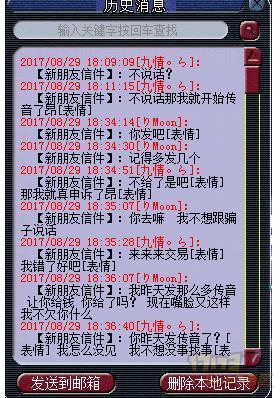 历史消息
输入关键字按回车查找
2017/08/29 18:09:09[九情。ら]:
【新朋友信件】: 不说话?
2017/08/29 18:11:15[九情。ら]:
【新朋友信件】: 不说话那我就开始传
音了昂[表情]
2017/08/29 18:34:14[りMoon]:
【新朋友信件】: 你发吧[表情]
2017/08/29 18:34:30[りMoon]:
【新朋友信件】: 记得多发几个
2017/08/29 18:34:51[九情。ら]:
【新朋友信件】: 不给了是吧[表情]
那我就真申诉了昂[表情]
2017/08/29 18:35:07[りMoon]:
【新朋友信件】: 你去嘛 我不想跟骗
子说话
2017/08/29 18:35:38[九情。ら]:
【新朋友信件】: 来来来交易[表情]
我错了好吧[表情]
2017/08/29 18:36:07[りMoon]:
【新朋友信件】: 我昨天发那么多传音
让你给钱 你给了吗? 现在嘴脸又这样
我不欠你什么
2017/08/29 18:36:40[九情。ら]:
【新朋友信件】: 你昨天发传音了?[
表情] 我怎么没见 我不想没事搞事[表
发送到邮箱
删除本地记录